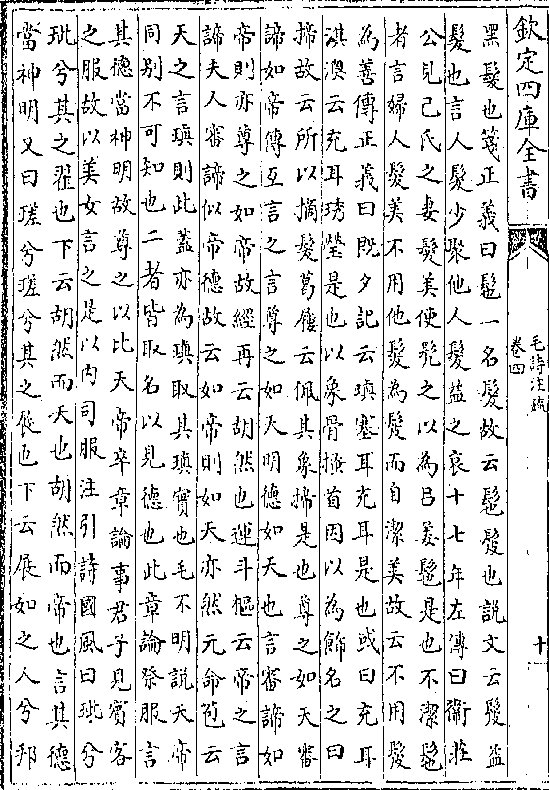 欽定四庫全書
毛詩注疏
卷四
十
黑髮也箋正義曰鬒一名髲故云鬄髲也說文云髲益
髮也言人髮少聚他人髮益之哀十七年左傳曰衛莊
公見己氏之妻髮美使髠之以為呂姜鬄是也不潔鬄
者言婦人髮美不用他髮為髲而自潔美故云不用髲
為善傳正義曰既夕記云瑱塞耳充耳是也或曰充耳
淇澳云充耳琇瑩是也以象骨搔首因以為飾名之曰
揥故云所以摘髮葛屨云佩其象揥是也尊之如天審
諦如帝傳互言之言尊之如天明德如天也言審諦如
帝則亦尊之如帝故經再云胡然也運斗樞云帝之言
諦夫人審諦似帝德故云如帝則如天亦然元命苞云
天之言瑱則此蓋亦為瑱取其瑱實也毛不明說天帝
同别不可知也二者皆取名以見德也此章論祭服言
其德當神明故尊之以比天帝卒章論事君子見賓客
之服故以美女言之是以内司服注引詩國風曰玼兮
玼兮其之翟也下云胡然而天也胡然而帝也言其德
當神明又曰瑳兮瑳兮其之展也下云展如之人兮邦